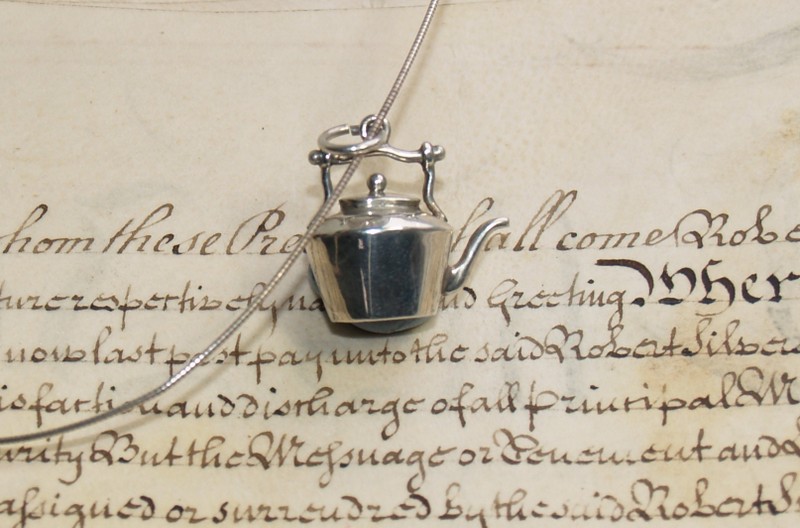 hom these Pre hall come Robe
ture respectively na nd Greeting Wher
now last past pay unto the said Robert Silvers
isfaction and discharge of all principal M
urity But the Messuage or Tenement and
assigned or surrendred by the said Robert S